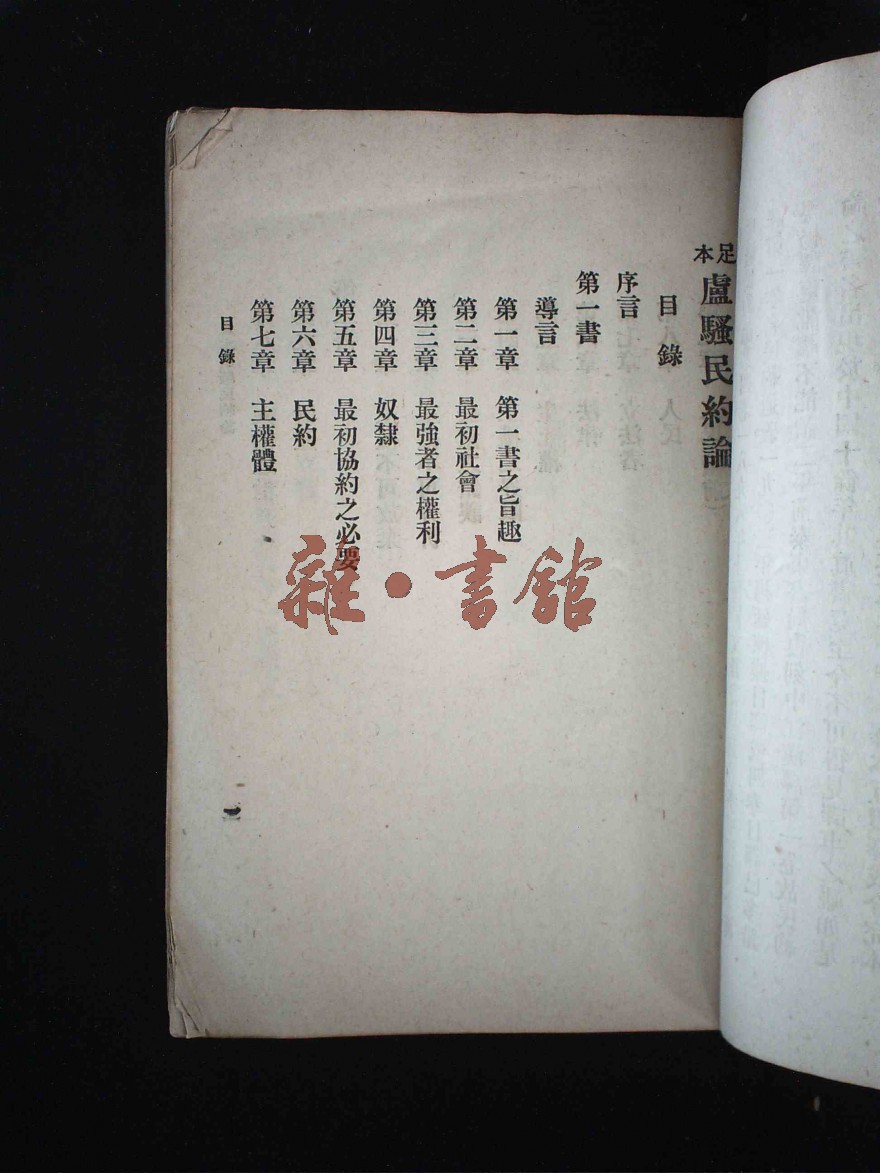 足本 盧騷民約論
目錄
序言
第一書
導言
第一章 第一書之旨趣
第二章 最初社會
第三章 最強者之權利
第四章 奴隸
第五章 最初協約之必要
第六章 民約
第七章 主權體
目錄
一
雜·書館